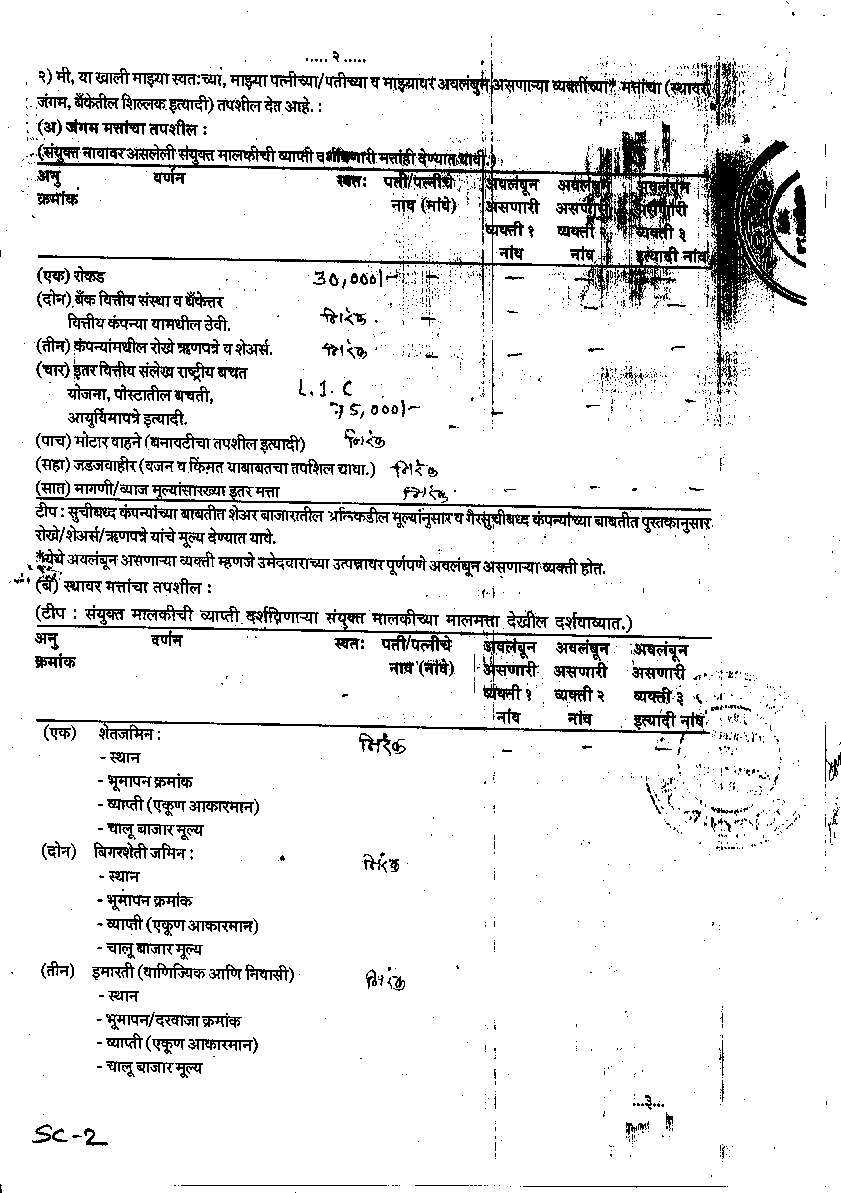 ..... २ .....
२) मी, या खाली माझ्या स्वत:च्या, माझ्या पत्नीच्या/पतीच्या व माझ्यावर अवलंबुन असणाऱ्या व्यक्तींच्या* मत्तांचा (स्थावर,
जंगम, बँकेतील शिल्लक इत्यादी) तपशील देत आहे. :
(अ) जंगम मत्तांचा तपशील :
(संयुक्त नावावर असलेली संयुक्त मालकीची व्याप्ती दर्शविणारी मत्ताही देण्यात यावी.)
अनु वर्णन स्वत: पती/पत्नीचे अवलंबून अवलंबून अवलंबून
क्रमांक नाव (नांवे) असणारी असणारी असणारी
व्यक्ती १ व्यक्ती २ व्यक्ती ३
नांव नांव इत्यादी नांव
(एक) रोकड 30,000/- – – – –
(दोन) बँक वित्तीय संस्था व बँकेत्तर
वित्तीय कंपन्या यामधील ठेवी. निरंक – – – –
(तीन) कंपन्यांमधील रोखे ऋणपत्रे व शेअर्स. निरंक – – – –
(चार) इतर वित्तीय संलेख राष्ट्रीय बचत
योजना, पोस्टातील बचती, L.I.C
आयुर्विमापत्रे इत्यादी. 75,000/- – – – –
(पाच) मोटार वाहने (बनावटीचा तपशील इत्यादी) निरंक
(सहा) जडजवाहीर (वजन व किंमत याबाबतचा तपशिल द्यावा.) निरंक
(सात) मागणी/व्याज मूल्यांसारख्या इतर मत्ता निरंक – – –
टीप : सुचीबध्द कंपन्यांच्या बाबतीत शेअर बाजारातील अलिकडील मूल्यांनुसार व गैरसुचीबध्द कंपन्यांच्या बाबतीत पुस्तकानुसार
रोखे/शेअर्स/ऋणपत्रे यांचे मूल्य देण्यात यावे.
*येथे अवलंबून असणाऱ्या व्यक्ती म्हणजे उमेदवाराच्या उत्पन्नावर पूर्णपणे अवलंबून असणाऱ्या व्यक्ती होत.
(ब) स्थावर मत्तांचा तपशील :
(टीप : संयुक्त मालकीची व्याप्ती दर्शविणाऱ्या संयुक्त मालकीच्या मालमत्ता देखील दर्शवाव्यात.)
अनु वर्णन स्वत: पती/पत्नीचे अवलंबून अवलंबून अवलंबून
क्रमांक नाव (नांवे) असणारी असणारी असणारी
व्यक्ती १ व्यक्ती २ व्यक्ती ३
नांव नांव इत्यादी नांव
(एक) शेतजमिन : निरंक – – –
- स्थान
- भूमापन क्रमांक
- व्याप्ती (एकूण आकारमान)
- चालू बाजार मूल्य
(दोन) बिगरशेती जमिन : निरंक
- स्थान
- भूमापन क्रमांक
- व्याप्ती (एकूण आकारमान)
- चालू बाजार मूल्य
(तीन) इमारती (वाणिज्यिक आणि निवासी) निरंक
- स्थान
- भूमापन/दरवाजा क्रमांक
- व्याप्ती (एकूण आकारमान)
- चालू बाजार मूल्य
...३...
SC-2